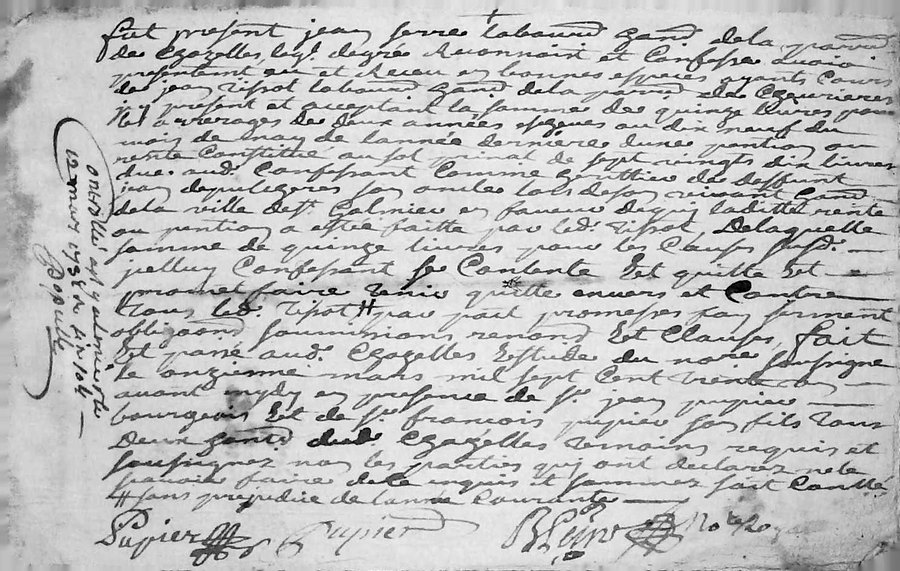 fut present jean serre laboureur hant de la parr
de Chazelles, leql de gre Reconnoit et Confesse avoir
presentemt eu et Receu en bonnes especes ayants Cours
de jean Tissot laboureur hant de la parr de Chevrieres
icy present et acceptant la somme de quinze livres pour
les arrerages de deux années escheues au dix neuf du
mois de may de l'année derniere d'une pention ou
rente Constitué au sol prinal de sept vingts dix livres
due aud. Confessant Comme heritier de deffunt
jean depuizeres son oncle lors de son vivant hant
de la ville de St. Galmier en faveur de qui laditte rente
ou pention a esté faitte par led. Tissot, De laquelle
somme de quinze livres pour les Causes susd.
Confessant se Contente Et quitte Et
promet faire tenir quitte envers et Contre
tous led. Tissot # par pait promesses foy serment
obligaons soumissions renond Et Clauses, fait
Et passé aud. Chazelles Estude du nore soussigné
le onzieme mars mil sept Cent trente
avant midy en presence de Sr. jean pupier
bourgeois Et de Sr. françois pupier son fils tous
deux hants dud. Chazelles temoins requis et
soussignez non les parties qui ont declarez ne le
sçavoir faire de ce enquis et sommez fait Contllé
# sans prejudice de l'anné Courante
Pupier Pupier
Contllé a
12 mars 173